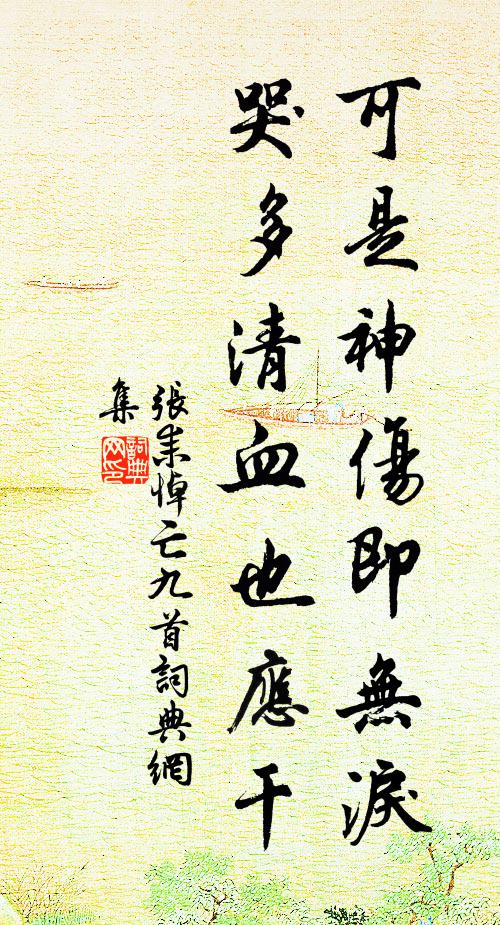 可是神傷即無淚
哭多清血也應干
張耒悼亡九首詞典網
集
詞典
网印